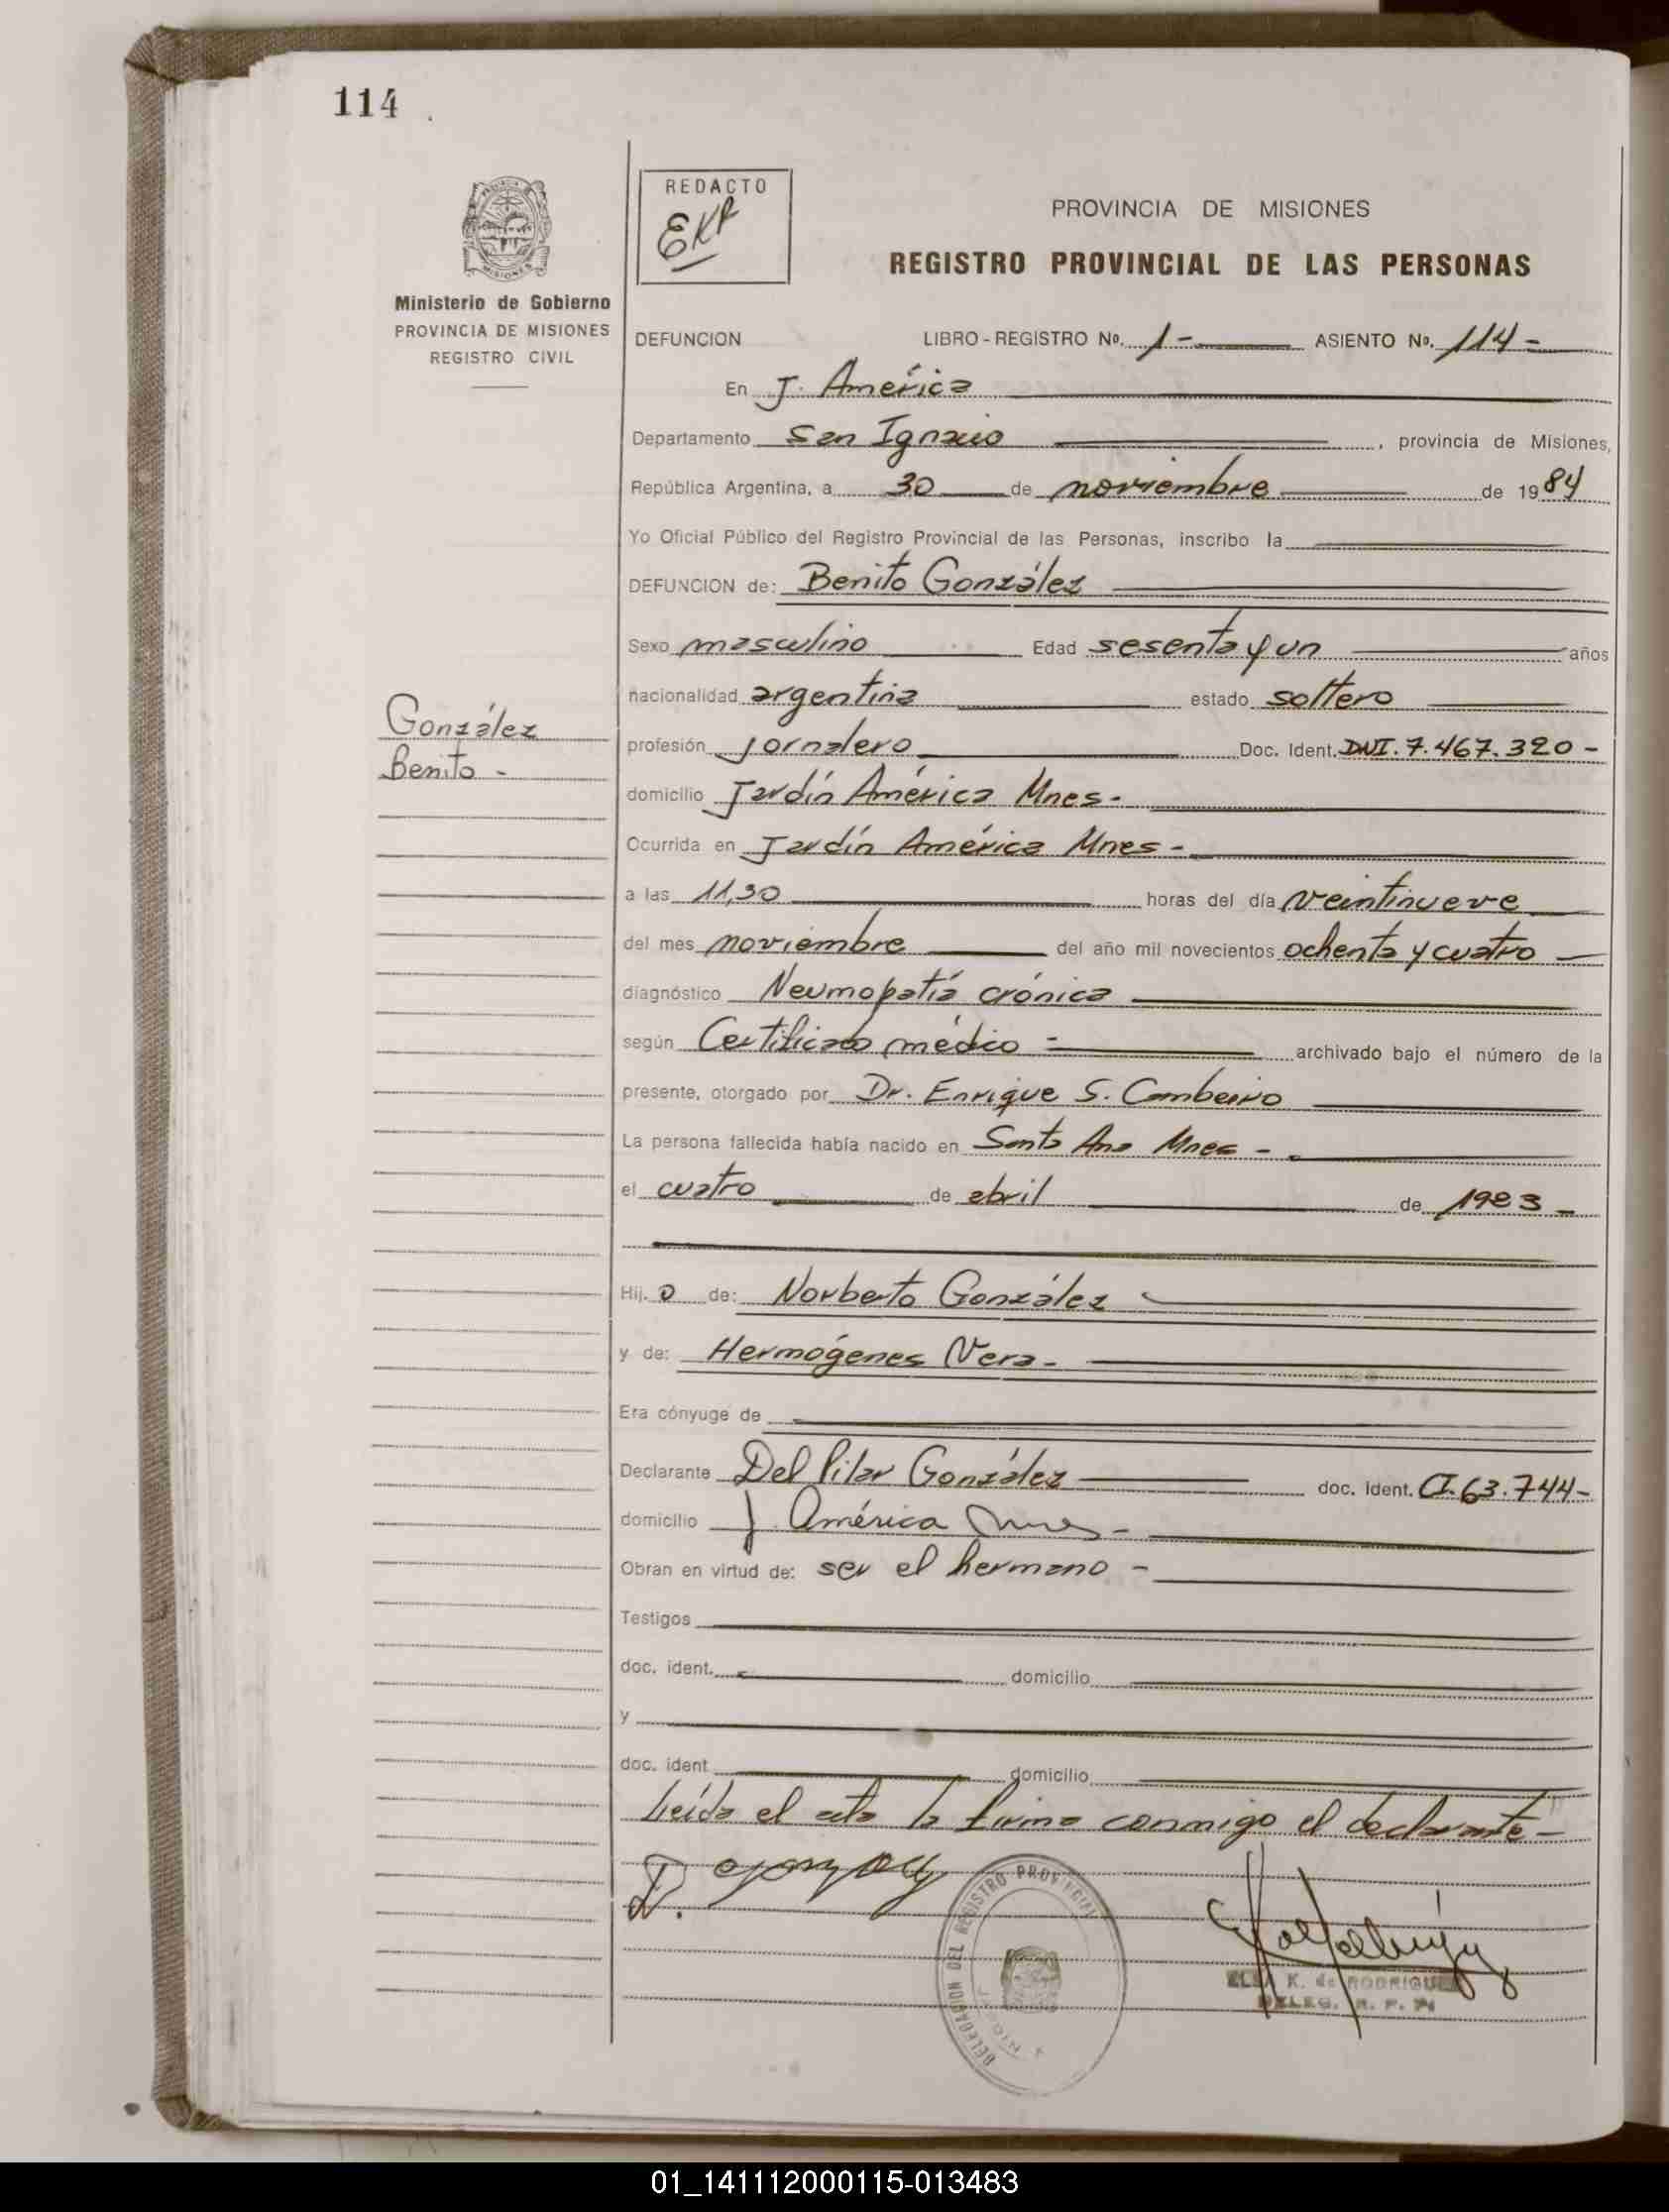 114
REDACTO
EKR
PROVINCIA DE MISIONES
REGISTRO PROVINCIAL DE LAS PERSONAS
MISIONES
Ministerio de Gobierno
PROVINCIA DE MISIONES
REGISTRO CIVIL
DEFUNCION LIBRO - REGISTRO Nº. 1 - ASIENTO Nº. 114 -
En J. América
Departamento San Ignacio , provincia de Misiones,
República Argentina, a 30 de noviembre de 1984
Yo Oficial Público del Registro Provincial de las Personas, inscribo la
DEFUNCION de: Benito González
Sexo masculino Edad sesenta y un años
nacionalidad argentina estado soltero
González
Benito -
profesión jornalero Doc. Ident. DNI. 7.467.320 -
domicilio Jardín América Mnes -
Ocurrida en Jardín América Mnes -
a las 11,30 horas del día veintinueve
del mes noviembre del año mil novecientos ochenta y cuatro
diagnóstico Neumopatía crónica
según Certificado médico - archivado bajo el número de la
presente, otorgado por Dr. Enrique S. Cambeiro
La persona fallecida había nacido en Santa Ana Mnes -
el cuatro de abril de 1923 -
Hij. o de: Norberto González
y de: Hermógenes Vera -
Era cónyuge de
Declarante Del Pilar González doc. ident. CI. 63.744 -
domicilio J. América Mnes -
Obran en virtud de: ser el hermano -
Testigos
doc. ident. domicilio
y
doc. ident domicilio
Leída el acta la firma conmigo el declarante -
DELEGACION DEL REGISTRO PROVINCIAL
K. de RODRIGUEZ
DELEG. R. P. P.
01_141112000115-013483